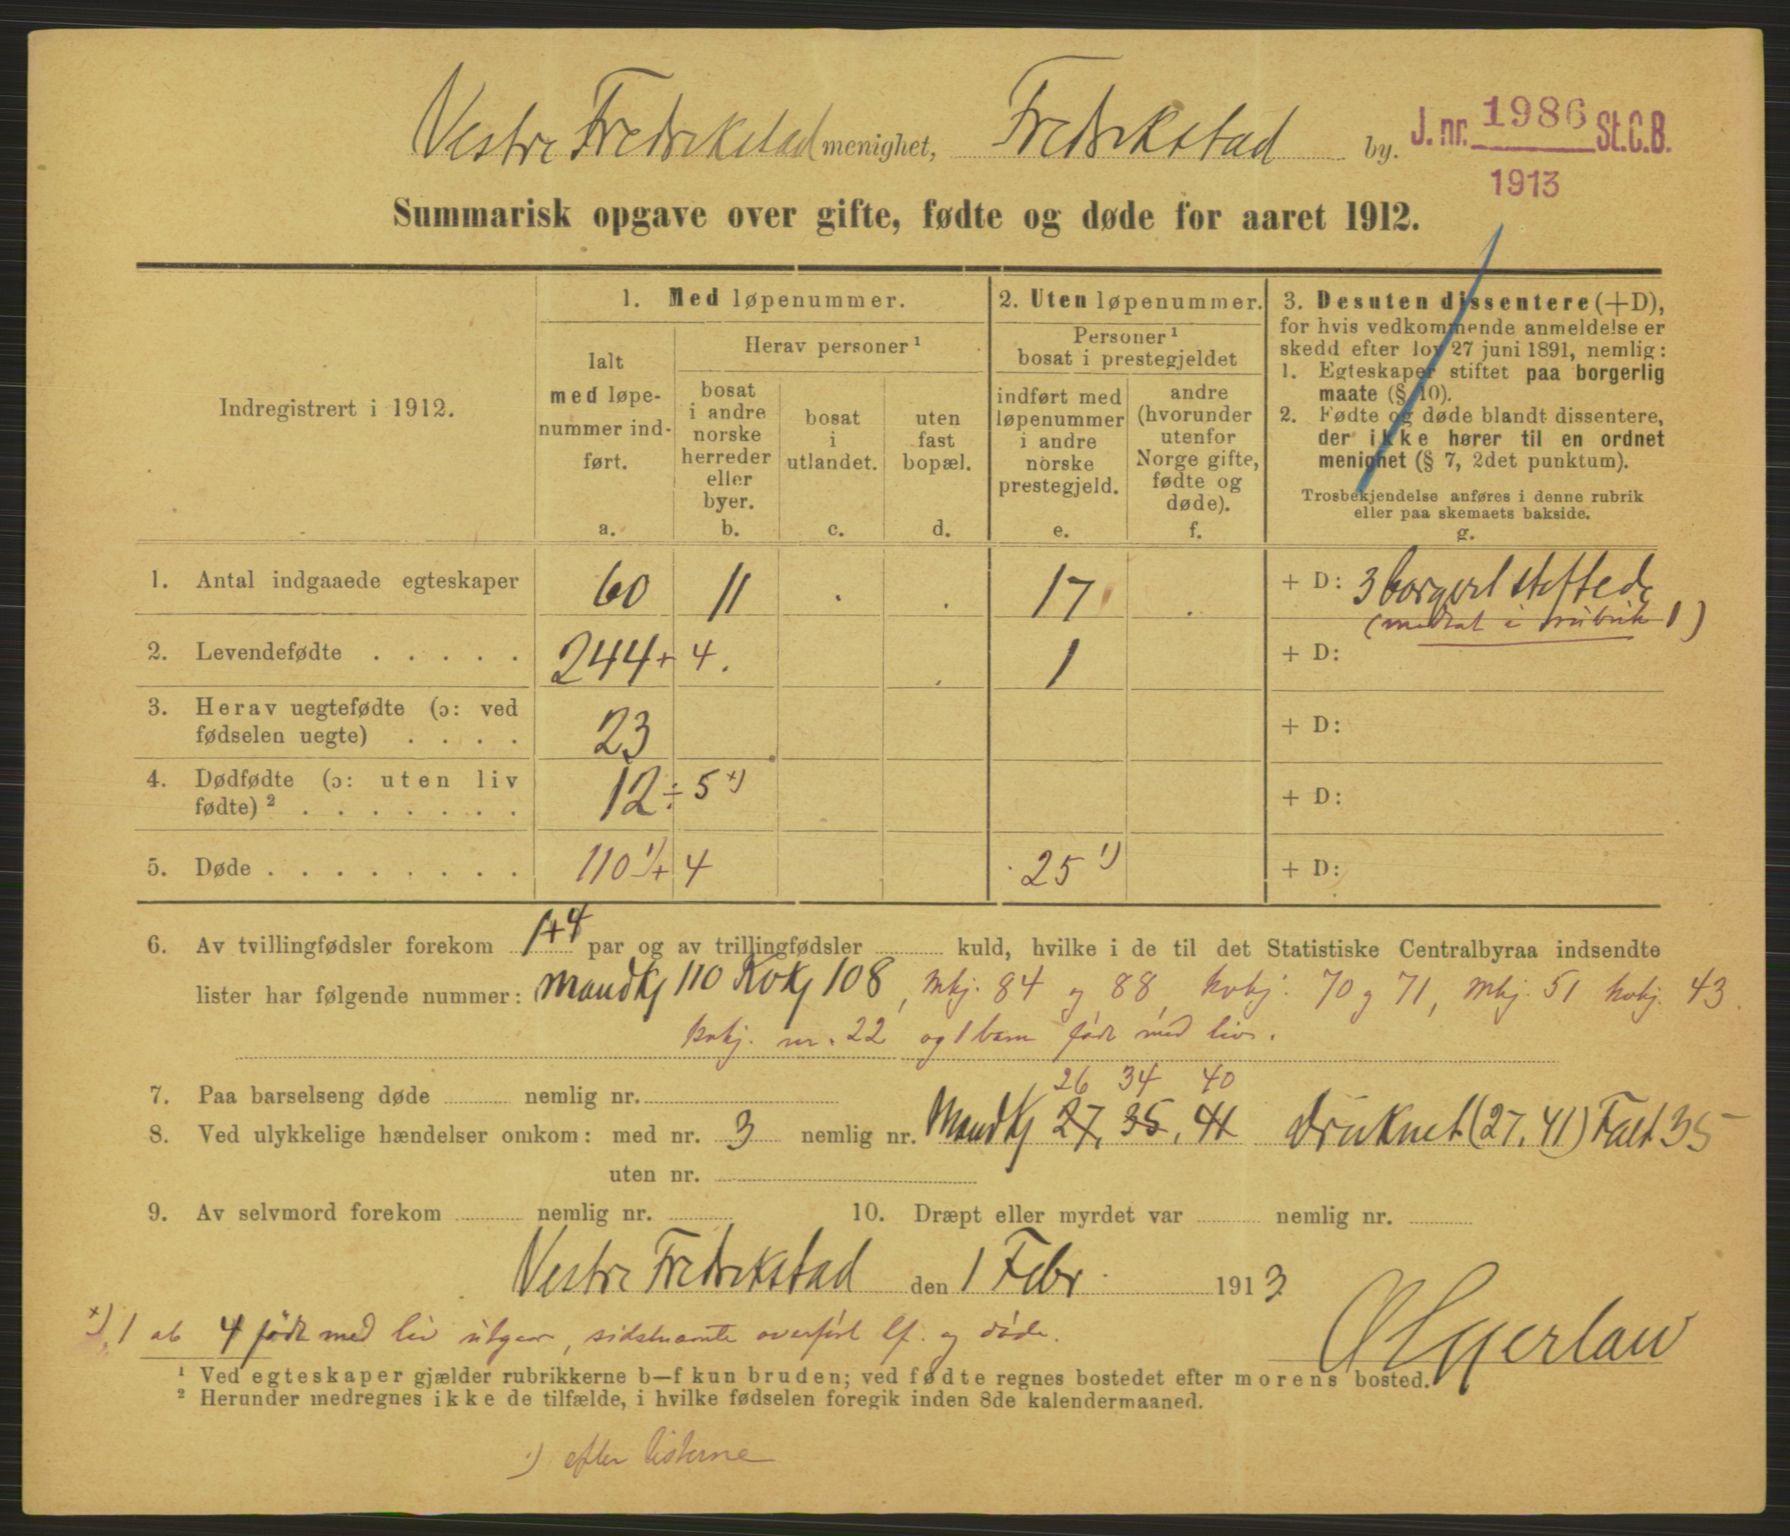 Vestre Fredrikstad menighet, Fredrikstad by.
J. nr. 1986 St.C.B.
1913
Summarisk opgave over gifte, fødte og døde for aaret 1912.
Indregistrert i 1912.
1. Med løpenummer.
Ialt med løpenummer indført.
a.
Herav personer ¹
bosat i andre norske herreder eller byer.
b.
bosat i utlandet.
c.
uten fast bopæl.
d.
2. Uten løpenummer.
Personer ¹ bosat i prestegjeldet
indført med løpenummer i andre norske prestegjeld.
e.
andre (hvorunder utenfor Norge gifte, fødte og døde).
f.
3. Desuten dissentere (+D),
for hvis vedkommende anmeldelse er
skedd efter lov 27 juni 1891, nemlig:
1. Egteskaper stiftet paa borgerlig
maate (§ 10).
2. Fødte og døde blandt dissentere,
der ikke hører til en ordnet
menighet (§ 7, 2det punktum).
Trosbekjendelse anføres i denne rubrik
eller paa skemaets bakside.
g.
1. Antal indgaaede egteskaper 60 11 . . 17 . + D: 3 borgerl stiftede
(medtat i rubrik 1)
2. Levendefødte . . . . . 244 + 4 . . 1 + D:
3. Herav uegtefødte (ɔ: ved
fødselen uegte) . . . . 23 + D:
4. Dødfødte (ɔ: uten liv
fødte) ² . . . . . . . 12 ÷ 5 x) + D:
5. Døde . . . . . . . . 110 1) + 4 25 1) + D:
6. Av tvillingfødsler forekom 1+4 par og av trillingfødsler kuld, hvilke i de til det Statistiske Centralbyraa indsendte
lister har følgende nummer: Mandkj 110 Kvkj 108, Mkj. 84 og 88, kvkj. 70 og 71, Mkj. 51 kvkj. 43.
kvkj. nr. 22 og 1 barn født med liv.
7. Paa barselseng døde nemlig nr.
26 34 40
8. Ved ulykkelige hændelser omkom: med nr. 3 nemlig nr. Mandkj 27, 35, 41 Druknet (27, 41) Falt 35
uten nr.
9. Av selvmord forekom nemlig nr. 10. Dræpt eller myrdet var nemlig nr.
Vestre Fredrikstad den 1 Febr. 1913
x) 1 ab 4 født med liv utgaar, sidstnævnte overført lf. og døde.
¹ Ved egteskaper gjælder rubrikkerne b—f kun bruden; ved fødte regnes bostedet efter morens bosted.
² Herunder medregnes ikke de tilfælde, i hvilke fødselen foregik inden 8de kalendermaaned.
1) efter listerne